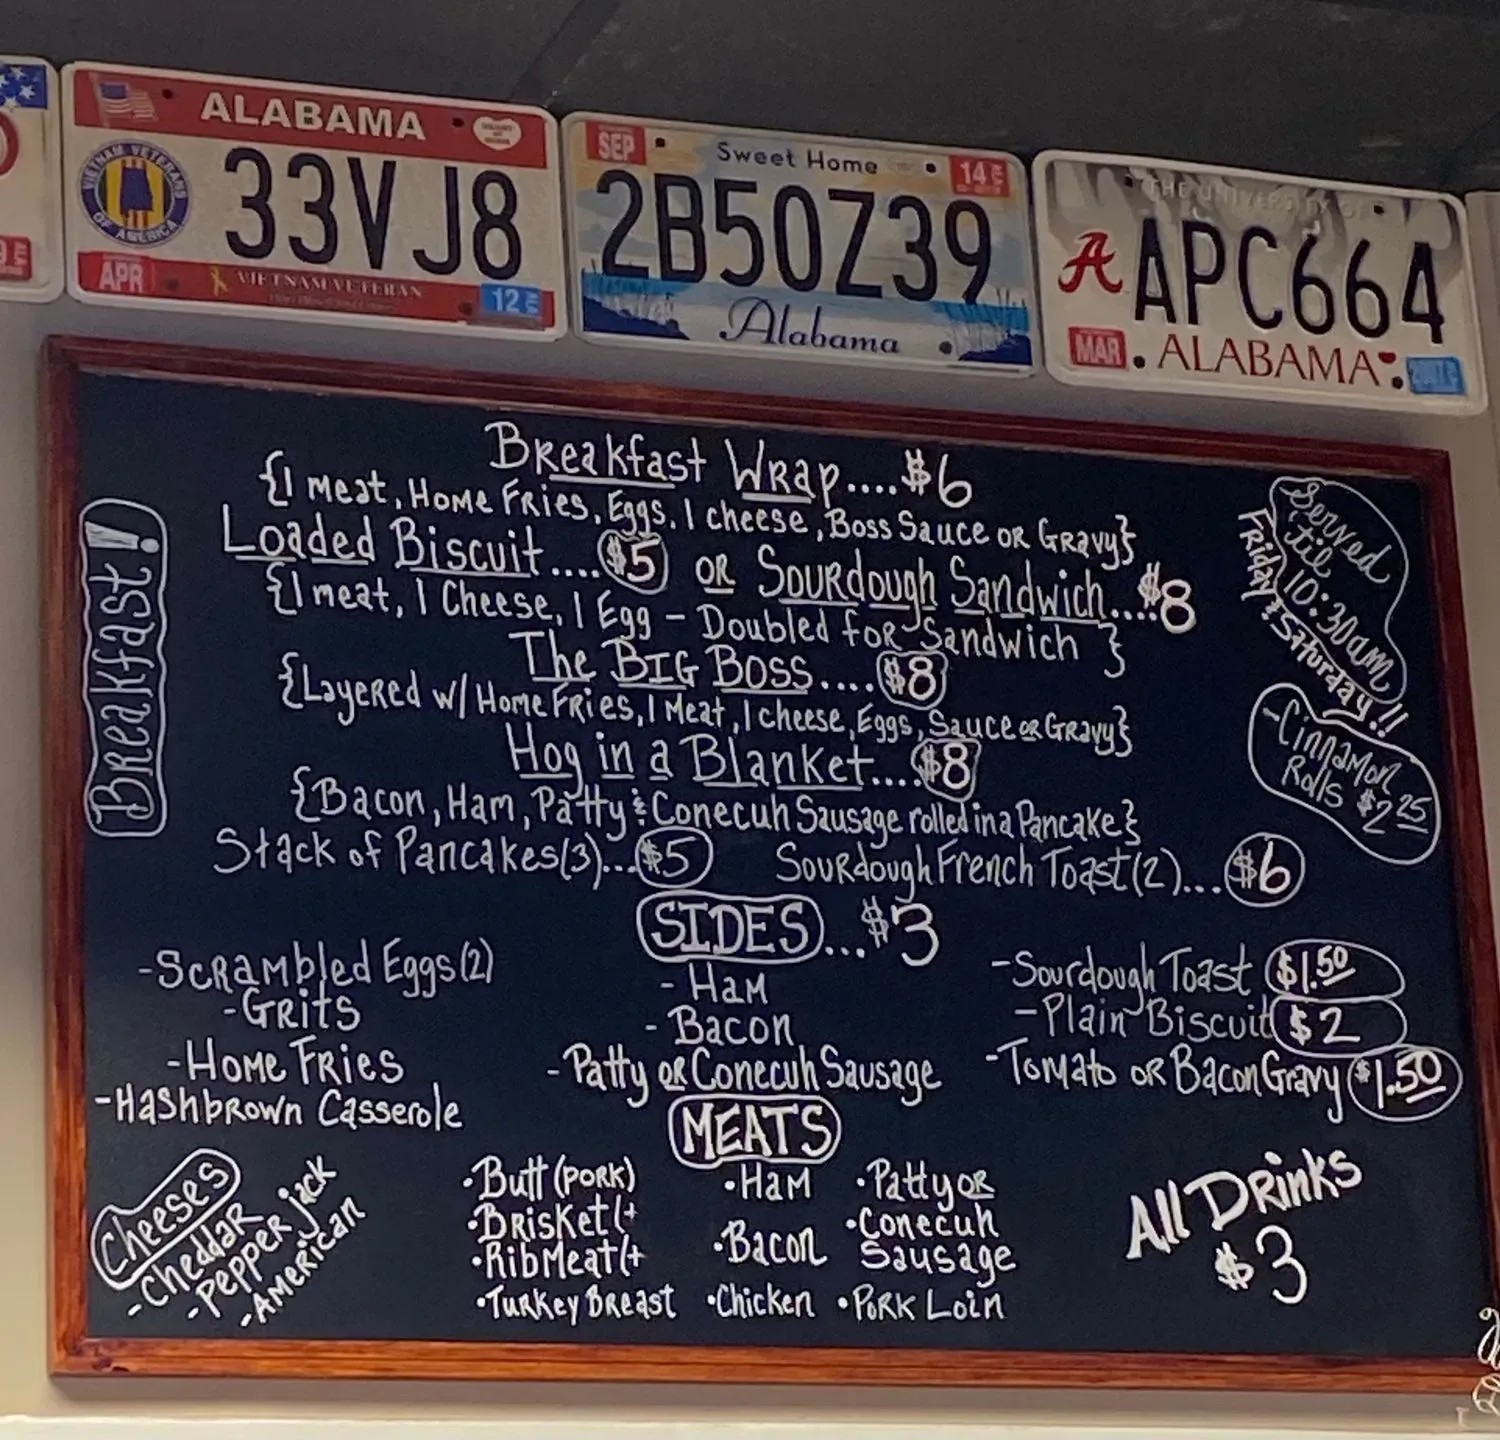 ALABAMA
33VJ8
VIETNAM VETERANS OF AMERICA
APR
VIETNAM VETERAN
12
SEP
Sweet Home
14
2B50Z39
Alabama
THE UNIVERSITY OF
A APC664
MAR
ALABAMA
Breakfast!
Breakfast Wrap....$6
{1 meat, Home Fries, Eggs, 1 cheese, Boss Sauce or Gravy}
Loaded Biscuit....$5 or Sourdough Sandwich....$8
{1 meat, 1 Cheese, 1 Egg - Doubled for Sandwich }
The BIG BOSS....$8
{Layered w/ Home Fries, 1 Meat, 1 cheese, Eggs, Sauce or Gravy}
Hog in a Blanket....$8
{Bacon, Ham, Patty & Conecuh Sausage rolled in a Pancake}
Stack of Pancakes(3)...$5
Sourdough French Toast(2)...$6
Served
'til
10:30am
Friday & Saturday!!
-Cinnamon
Rolls $2 25
SIDES...$3
-Scrambled Eggs(2)
-Grits
-Home Fries
-Hashbrown Casserole
- Ham
- Bacon
- Patty or Conecuh Sausage
-Sourdough Toast $1.50
-Plain Biscuit $2
-Tomato or Bacon Gravy $1.50
MEATS
•Butt (pork)
•Brisket (+
•Rib Meat (+
•Turkey Breast
•Ham
•Bacon
•Chicken
•Patty or
•Conecuh
Sausage
•Pork Loin
Cheeses
-Cheddar
-Pepper jack
-American
All Drinks
$3